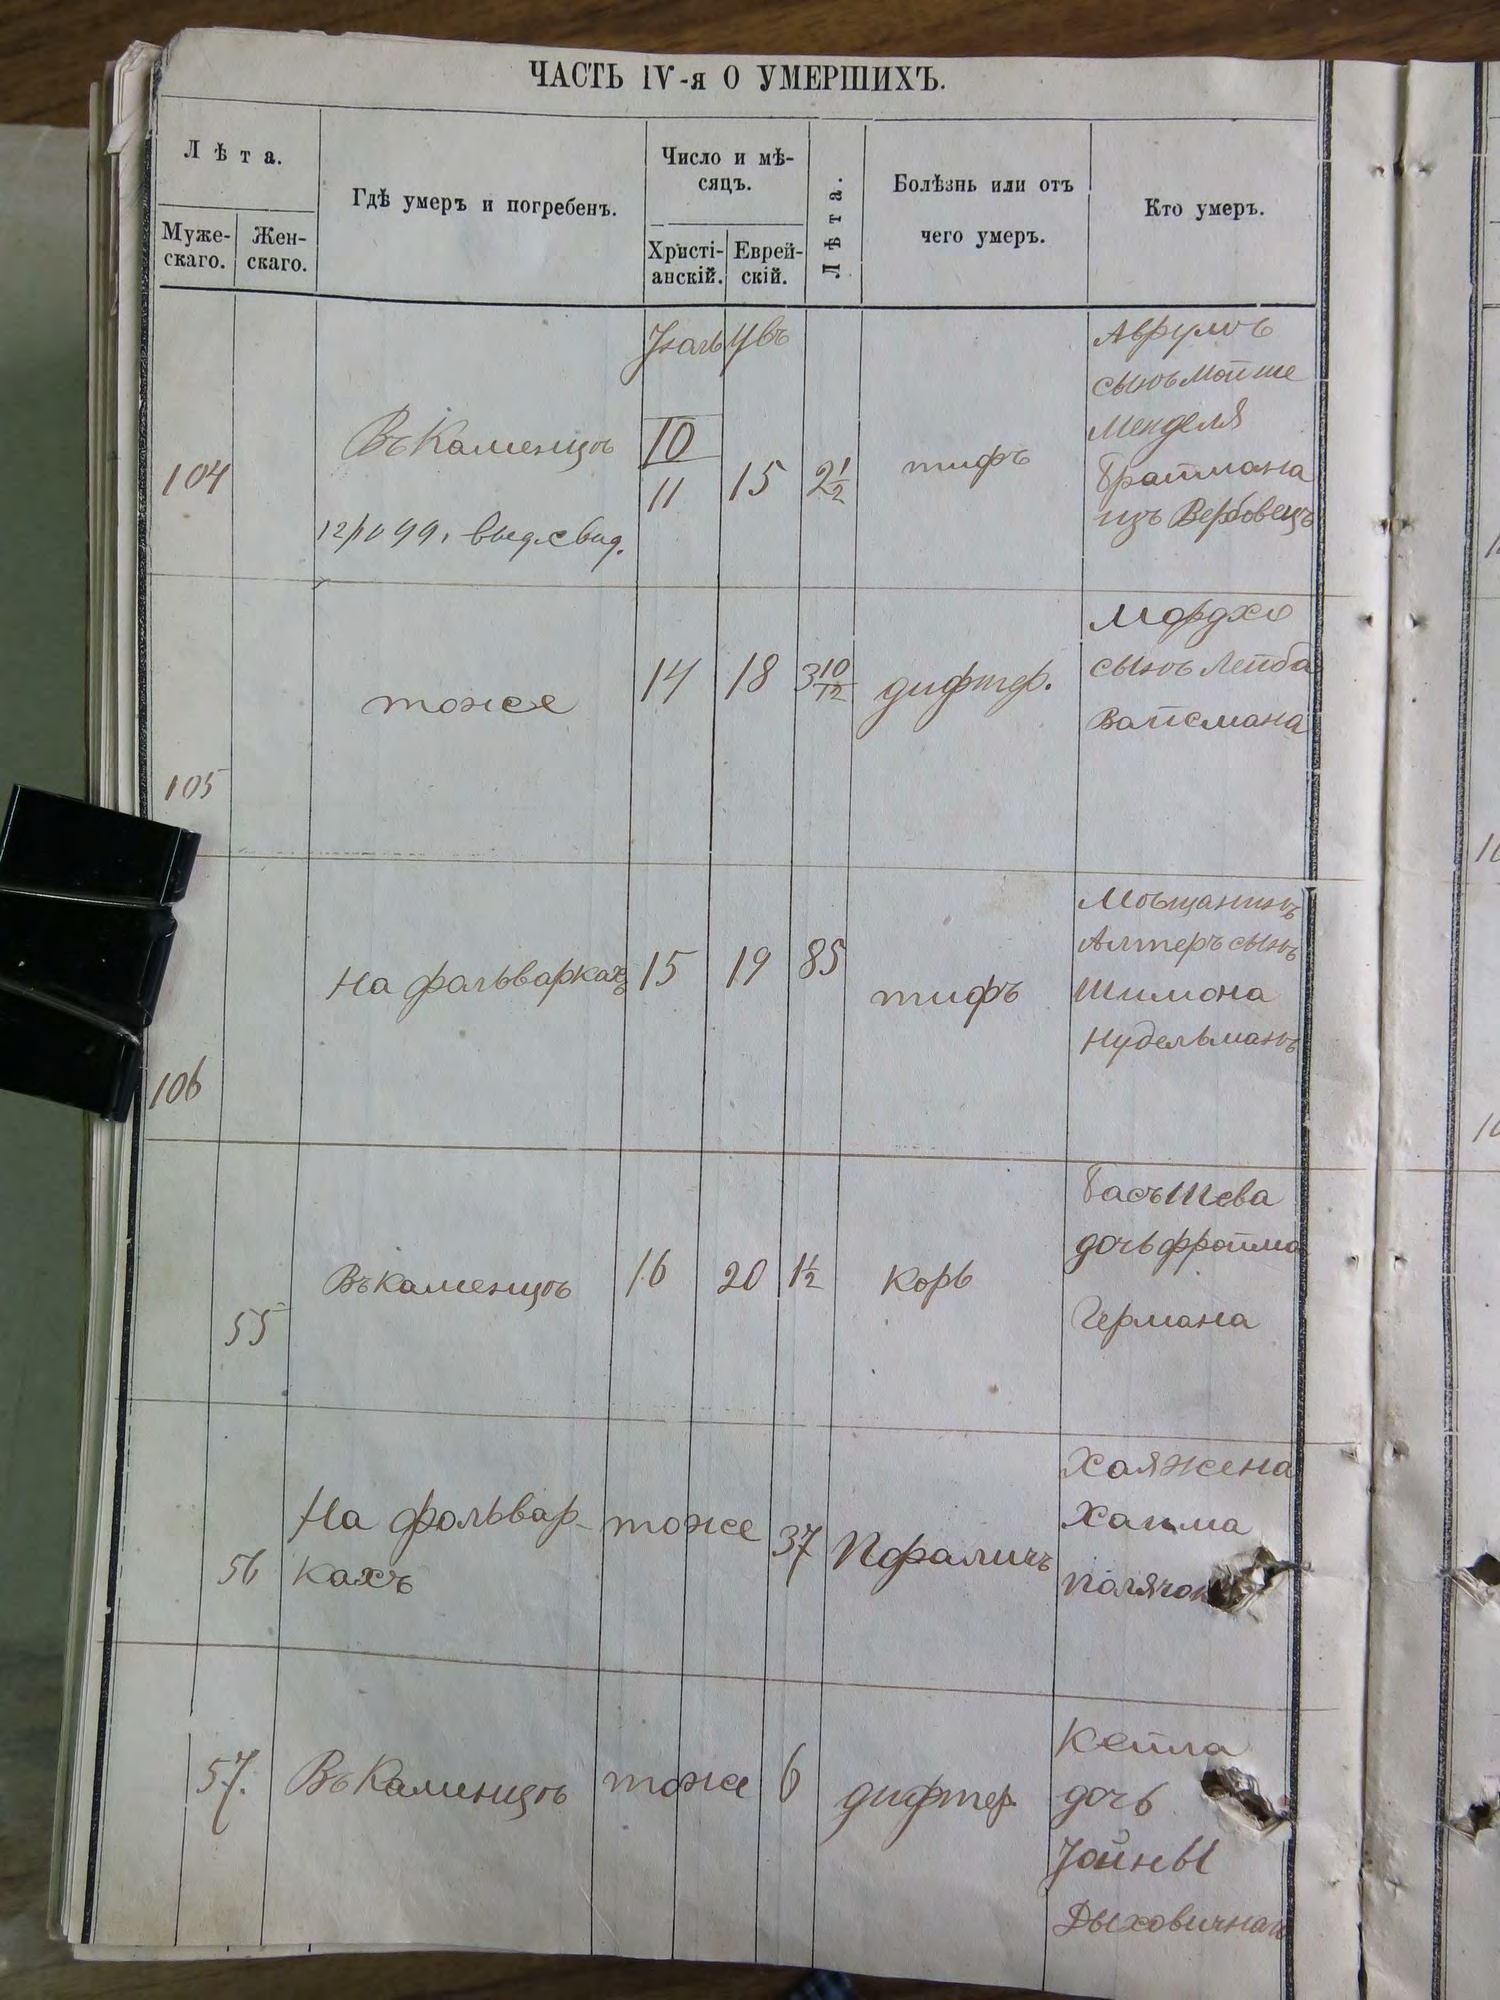 ЧАСТЬ IV-я О УМЕРШИХЪ.
Лѣта.
Муже-
скаго.
Жен-
скаго.
Гдѣ умеръ и погребенъ.
Число и мѣ-
сяцъ.
Христі-
анскій.
Еврей-
скій.
Лѣта.
Болѣзнь или отъ
чего умеръ.
Кто умеръ.
104
Въ Каменцѣ
12/10 99 г. выд. свид.
10
11
15
2 1/2
тифъ
Аврумъ
сынъ Мойше
Менделя
Бройтмана
изъ Вербовецъ
105
тоже
14
18
3 10/12
дифтер.
Мордхо
сынъ Лейба
Вайсмана
106
На фольваркахъ
15
19
85
тифъ
Мѣщанинъ
Алтеръ сынъ
Шимона
Нудельманъ
55
Въ Каменцѣ
16
20
1 1/2
Корь
Бась Шева
дочь Фройма
Германа
56
На фольвар-
кахъ
тоже
37
Поралич
Хая жена
Хаима
57.
Въ Каменцѣ
тоже
6
дифтер.
Кейла
дочь
Іойны